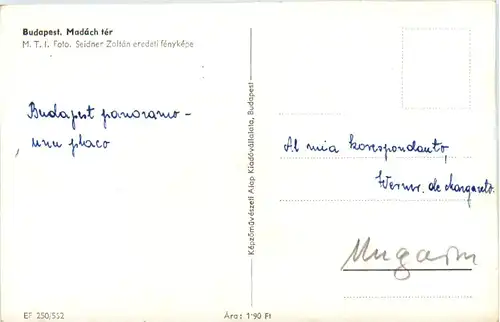 Budapest. Madách tér
M. T. I. Foto. Seidner Zoltán eredeti fényképe
Budapest panoramo -
unu placo
Képzőművészeti Alap Kiadóvállalata, Budapest
Al mia korespondanto,
Werner. de Margareto.
Ungarn
EF 250/552
Ára: 1·90 Ft